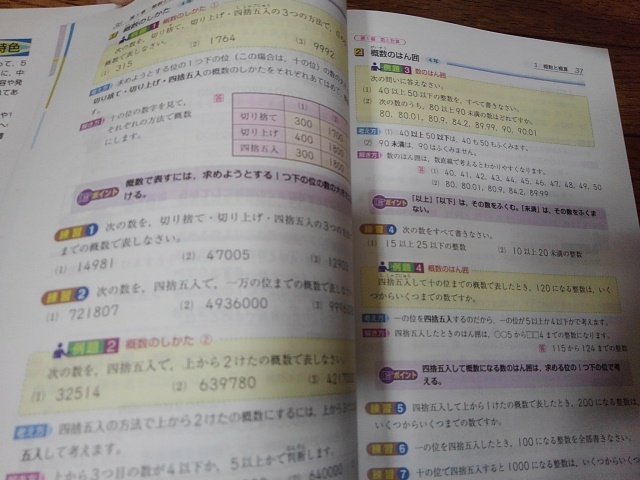 特色
概数のしかた
4年
例題 1 概数のしかた ①
次の数を、切り捨て・切り上げ・四捨五入の3つの方法で、
(1) 315
(2) 1764
(3) 9992
求めようとする位の1つ下の位（この場合は、十の位）の数の
切り捨て・切り上げ・四捨五入の概数のしかたをそれぞれあてはめ
考え方 十の位の数字を見て、
それぞれの方法で概数
にします。
答
(1) (2)
切り捨て 300 1700
切り上げ 400 1800
四捨五入 300 1800
ポイント 概数で表すには、求めようとする1つ下の位の数の大き
練習 1 次の数を、切り捨て・切り上げ・四捨五入の3つの
までの概数で表しなさい。
(1) 14981
(2) 47005
(3)
練習 2 次の数を、四捨五入で、一万の位までの概数で表しな
(1) 721807
(2) 4936000
(3)
例題 2 概数のしかた ②
次の数を、四捨五入で、上から2けたの概数で表しなさい。
(1) 32514
(2) 639780
(3)
考え方 四捨五入の方法で上から2けたの概数にするには、上から3
五入して考えます。
上から3つ目の数が4以下か、5以上かで判断します。
640000
1 概数と概算 37
2 概数のはん囲 4年
例題 3 数のはん囲
次の問いに答えなさい。
(1) 40以上50以下の整数を、すべて書きなさい。
(2) 次の数のうち、80以上90未満の数はどれですか。
80, 80.01, 80.9, 84.2, 89.99, 90, 90.01
考え方 (1) 40以上50以下は、40も50もふくみます。
(2) 90未満は、90はふくみません。
解き方 数のはん囲は、数直線で考えるとわかりやすくなります。
答 (1) 40, 41, 42, 43, 44, 45, 46, 47, 48, 49, 50
(2) 80, 80.01, 80.9, 84.2, 89.99
ポイント 「以上」「以下」は、その数をふくむ。「未満」は、その数をふくま
ない。
練習 4 次の数をすべて書きなさい。
(1) 15以上25以下の整数
(2) 10以上20未満の整数
例題 4 概数のはん囲
四捨五入して十の位までの概数で表したとき、120になる整数は、いく
つからいくつまでの数ですか。
考え方 一の位を四捨五入するのだから、一の位が5以上か4以下かで考えます。
解き方 四捨五入したときのはん囲は、○○5から□□4までの整数になります。
答 115から124までの整数
ポイント 四捨五入して概数になる数のはん囲は、求める位の1つ下の位で考
える。
練習 5 四捨五入して上から1けたの概数で表したとき、200になる整数は、
いくつからいくつまでの数ですか。
練習 6 一の位を四捨五入したとき、100になる整数を全部書きなさい。
練習 7 十の位で四捨五入すると1000になる整数は、いくつからいくつ